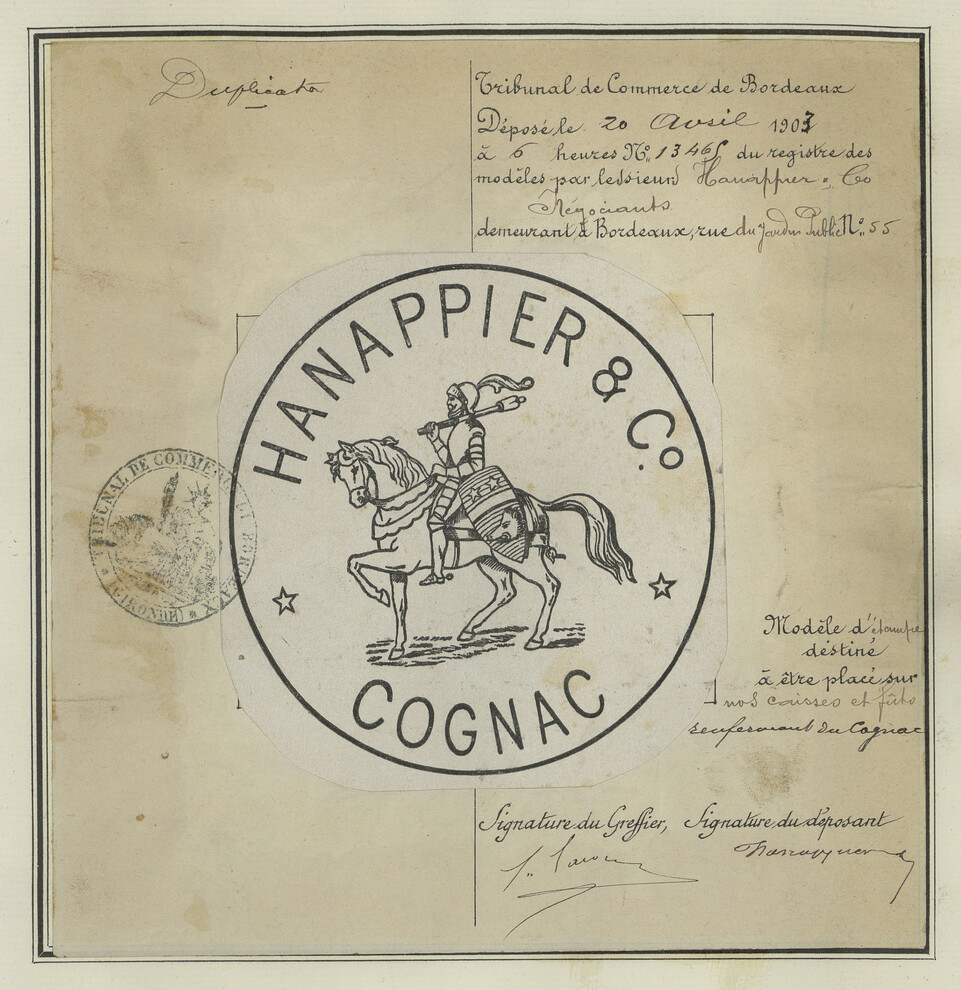 Duplicata
Tribunal de Commerce de Bordeaux
Déposé le 20 Avril 1903
à 6 heures No. 13465 du registre des
modèles par le sieur Hanappier & Co
Négociants
demeurant à Bordeaux, rue du Jardin Public No. 55
HANAPPIER & Co.
COGNAC
TRIBUNAL DE COMMERCE DE BORDEAUX
(GIRONDE)
Modèle d'étampe
destiné
à être placé sur
nos caisses et fûts
renfermant du Cognac
Signature du Greffier, Signature du déposant